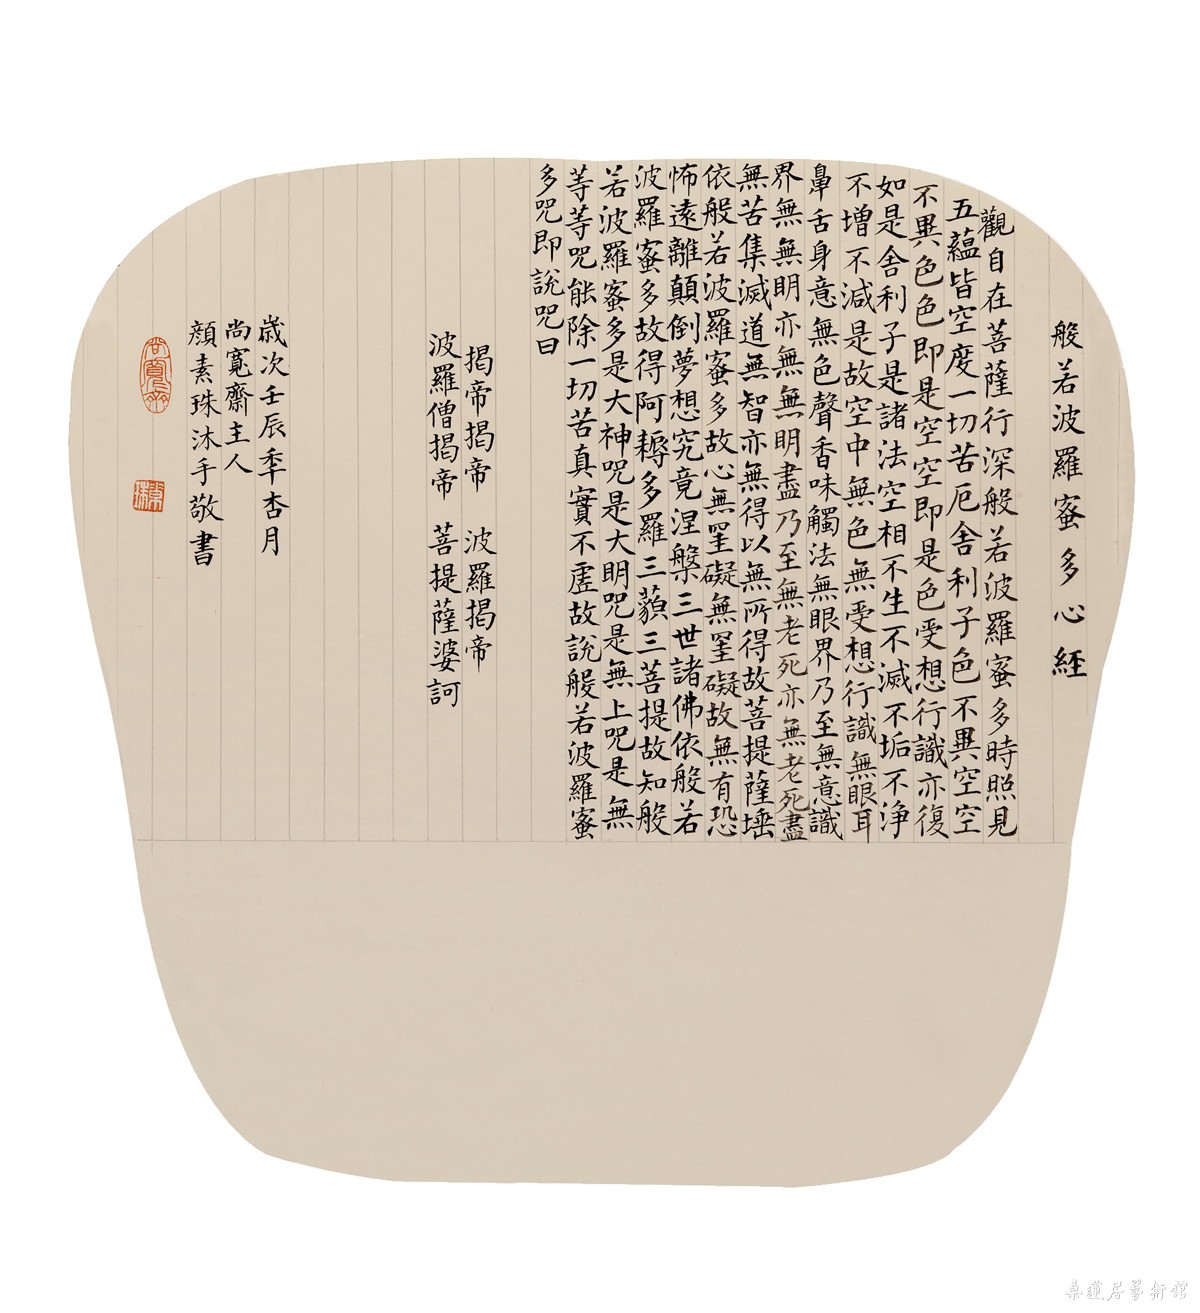 般若波羅蜜多心經
觀自在菩薩行深般若波羅蜜多時照見
五蘊皆空度一切苦厄舍利子色不異空空
不異色色即是空空即是色受想行識亦復
如是舍利子是諸法空相不生不滅不垢不淨
不增不減是故空中無色無受想行識無眼耳
鼻舌身意無色聲香味觸法無眼界乃至無意識
界無無明亦無無明盡乃至無老死亦無老死盡
無苦集滅道無智亦無得以無所得故菩提薩埵
依般若波羅蜜多故心無罣礙無罣礙故無有恐
怖遠離顛倒夢想究竟涅槃三世諸佛依般若
波羅蜜多故得阿耨多羅三藐三菩提故知般
若波羅蜜多是大神咒是大明咒是無上咒是無
等等咒能除一切苦真實不虛故說般若波羅蜜
多咒即說咒曰
揭帝揭帝 波羅揭帝
波羅僧揭帝 菩提薩婆訶
歲次壬辰年杏月
尚寬齋主人
顏素珠沐手敬書
尚寬齋
素珠
桑蓮居藝術館